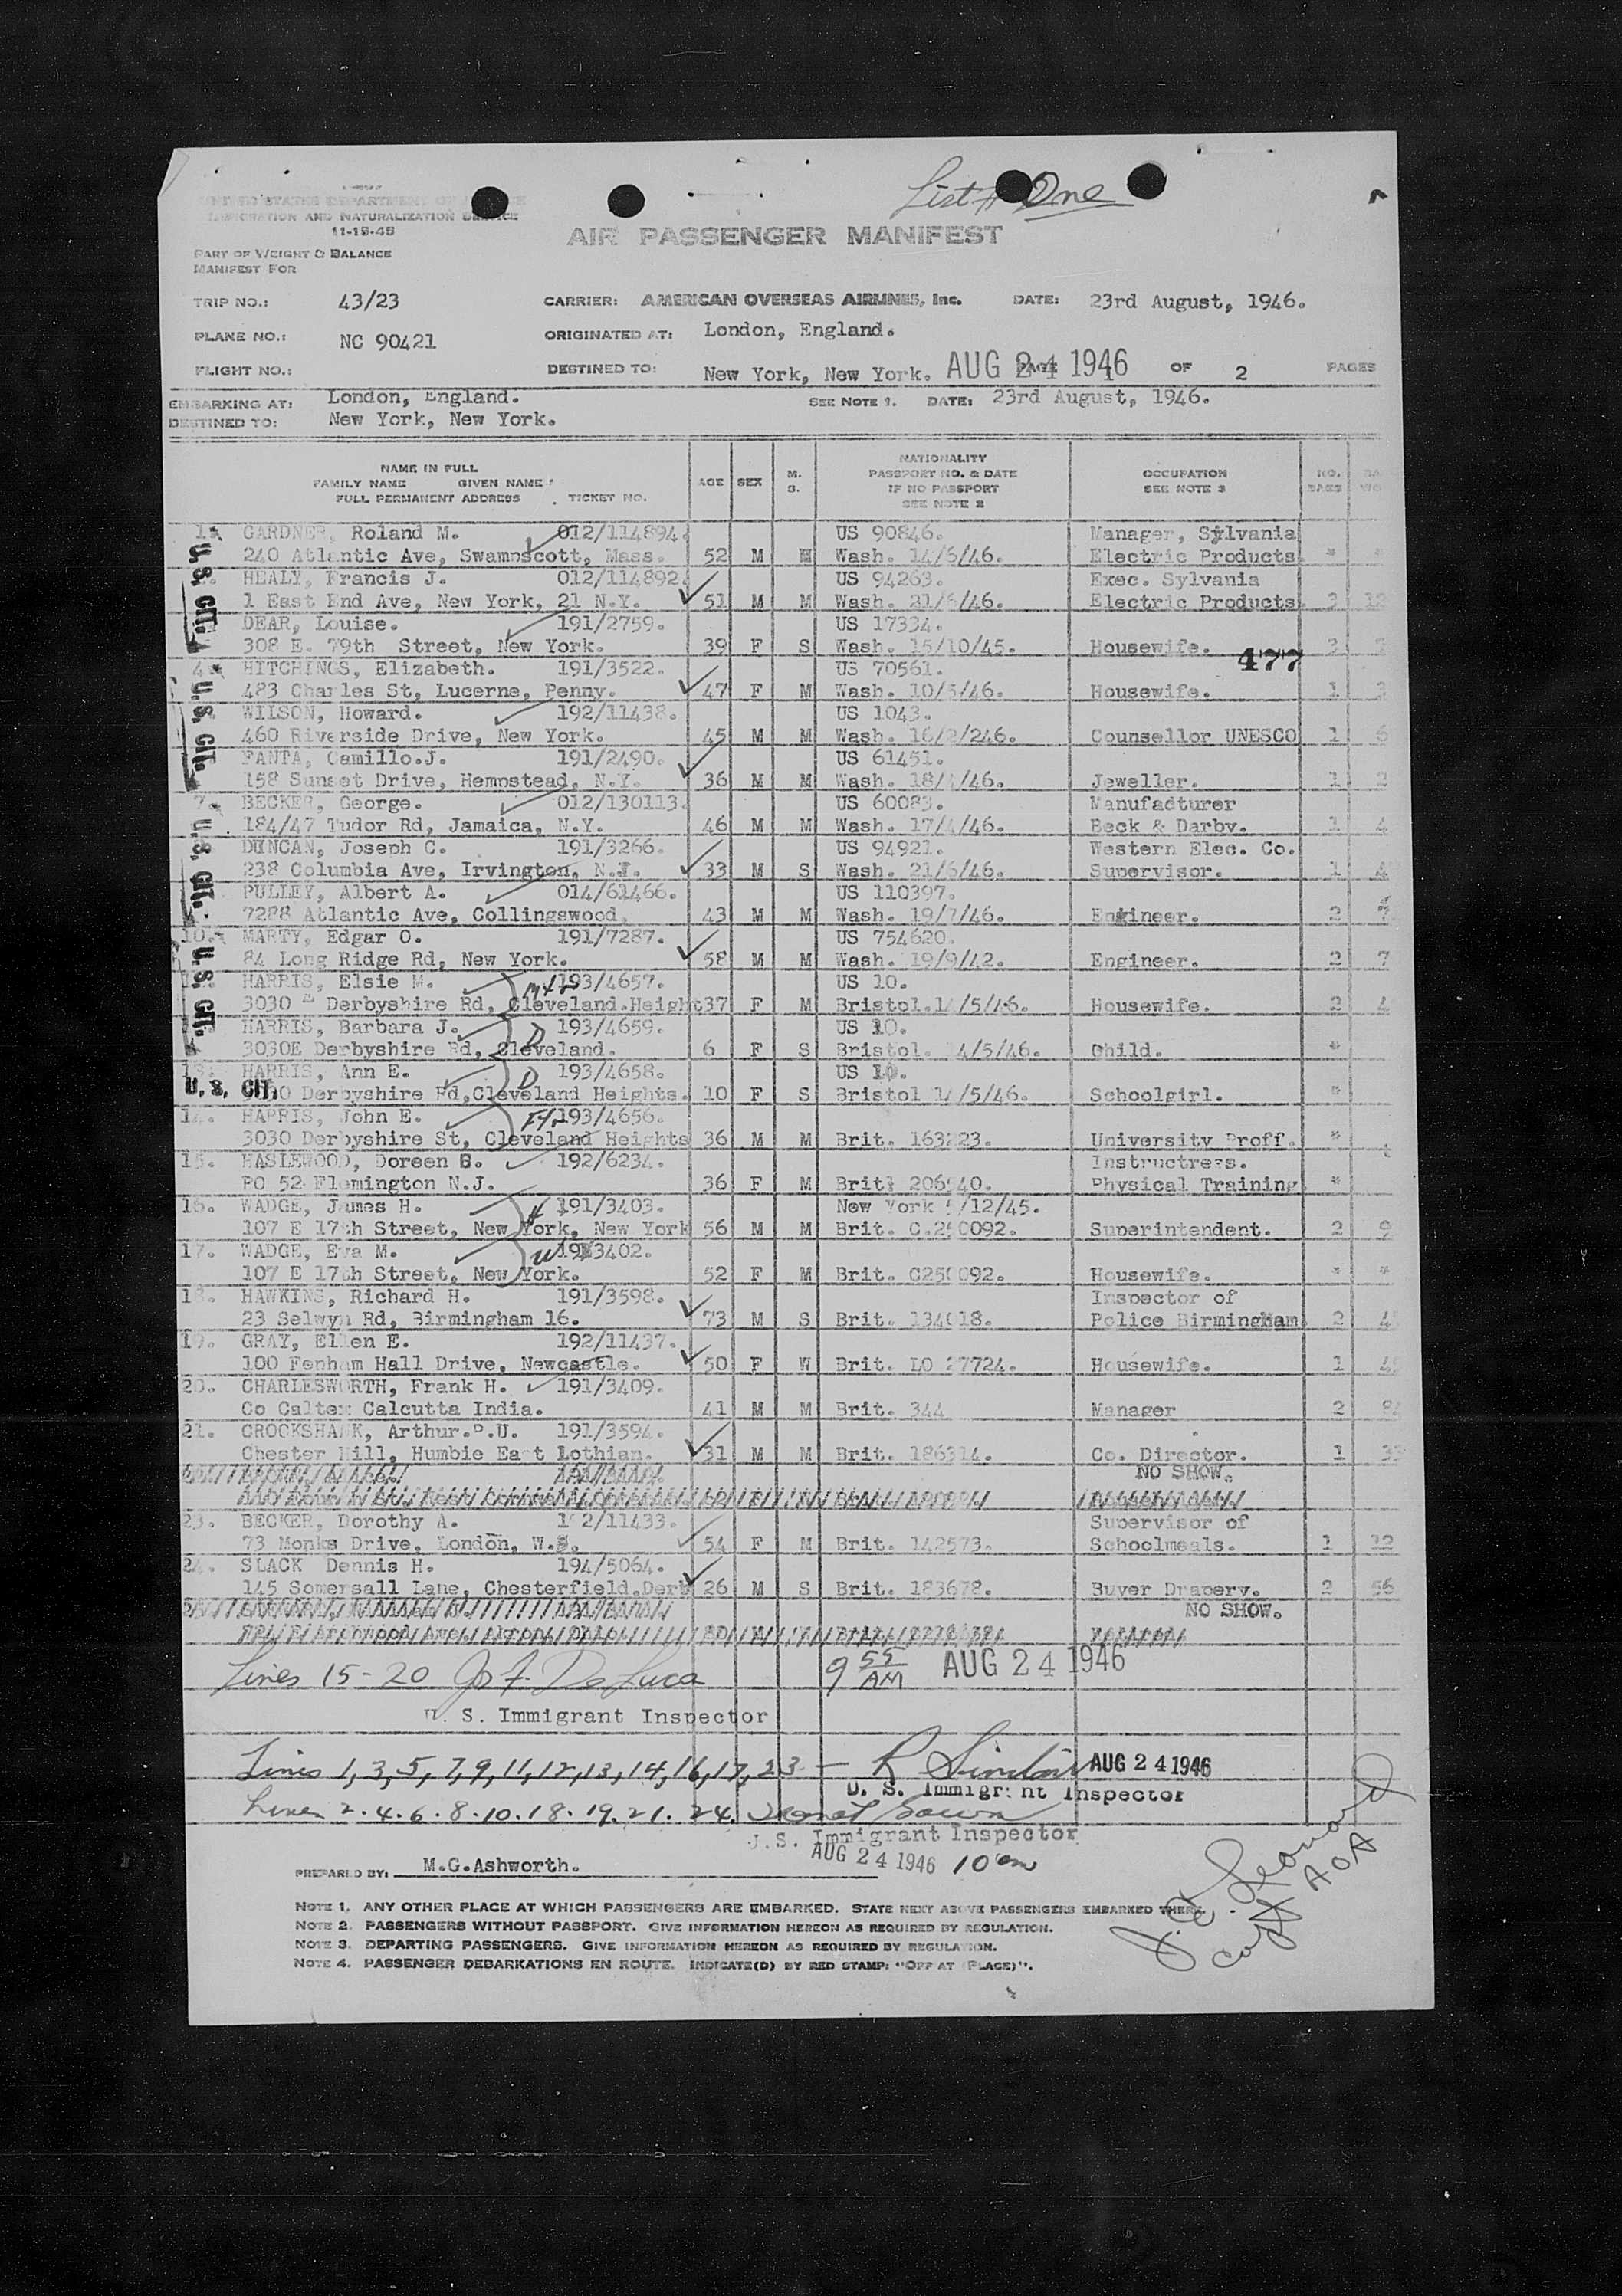 List # One
UNITED STATES DEPARTMENT OF
IMMIGRATION AND NATURALIZATION SERVICE
11-19-45
AIR PASSENGER MANIFEST
PART OF WEIGHT & BALANCE
MANIFEST FOR
TRIP NO.: 43/23 CARRIER: AMERICAN OVERSEAS AIRLINES, Inc. DATE: 23rd August, 1946.
PLANE NO.: NC 90421 ORIGINATED AT: London, England.
FLIGHT NO.: DESTINED TO: New York, New York. AUG 24 1946 PAGE 1 OF 2 PAGES
EMBARKING AT: London, England. SEE NOTE 1. DATE: 23rd August, 1946.
DESTINED TO: New York, New York.
NAME IN FULL
FAMILY NAME GIVEN NAME
FULL PERMANENT ADDRESS TICKET NO.
AGE SEX M. S.
NATIONALITY
PASSPORT NO. & DATE
IF NO PASSPORT
SEE NOTE 2
OCCUPATION
SEE NOTE 3
NO. BAGS
1. GARDNER, Roland M. 012/114894. US 90846. Manager, Sylvania
240 Atlantic Ave, Swampscott, Mass. 52 M M Wash. 14/6/46. Electric Products * *
HEALY, Francis J. 012/114892. US 94263. Exec. Sylvania
1 East End Ave, New York, 21 N.Y. 51 M M Wash. 21/6/46. Electric Products. 3 12
DEAR, Louise. 191/2759. US 17334.
308 E. 79th Street, New York. 39 F S Wash. 15/10/45. Housewife.
477
4. HITCHINGS, Elizabeth. 191/3522. US 70561.
483 Charles St, Lucerne, Penny. 47 F M Wash. 10/5/46. Housewife. 1
WILSON, Howard. 192/11438. US 1043.
460 Riverside Drive, New York. 45 M M Wash. 16/2/246. Counsellor UNESCO 1 6
FANTA, Camillo.J. 191/2490. US 61451.
158 Sunset Drive, Hempstead, N.Y. 36 M M Wash. 18/4/46. Jeweller. 1 2
7. BECKER, George. 012/130113. US 60083. Manufadturer
184/47 Tudor Rd, Jamaica, N.Y. 46 M M Wash. 17/4/46. Beck & Darby. 1 4
DUNCAN, Joseph C. 191/3266. US 94921. Western Elec. Co.
238 Columbia Ave, Irvington, N.J. 33 M S Wash. 21/6/46. Supervisor. 1 4
PULLEY, Albert A. 014/61466. US 110397.
7288 Atlantic Ave, Collingswood, 43 M M Wash. 19/7/46. Engineer. 2 7
10. MARTY, Edgar O. 191/7287. US 754620.
84 Long Ridge Rd, New York. 58 M M Wash. 19/9/42. Engineer. 2 7
HARRIS, Elsie M. 193/4657. US 10.
3030 Derbyshire Rd, Cleveland.Height 37 F M Bristol.14/5/46. Housewife. 2 4
HARRIS, Barbara J. D 193/4659. US 10.
3030E Derbyshire Rd, Cleveland. 6 F S Bristol. 14/5/46. Child. *
13. HARRIS, Ann E. D 193/4658. US 10.
Derbyshire Rd,Cleveland Heights. 10 F S Bristol 14/5/46. Schoolgirl. *
U.S. CIT.
U.S. CIT.
U.S. CIT.
U.S. CIT.
U. S. CIT.
14. HARRIS, John E. 193/4656.
3030 Derbyshire St, Cleveland Heights 36 M M Brit. 163223. University Proff. *
15. HASLEWOOD, Doreen B. 192/6234. Instructress.
PO 52 Flemington N.J. 36 F M Brit. 206940. Physical Training *
16. WADGE, James H. H 191/3403. New York 5/12/45.
107 E 17th Street, New York, New York 56 M M Brit. C.250092. Superintendent. 2 9
17. WADGE, Eva M. W 191/3402.
107 E 17th Street, New York. 52 F M Brit. C250092. Housewife. * *
18. HAWKINS, Richard H. 191/3598. Inspector of
23 Selwyn Rd, Birmingham 16. 73 M S Brit. 134018. Police Birmingham 2
19. GRAY, Ellen E. 192/11437.
100 Fenham Hall Drive, Newcastle. 50 F W Brit. LO 27724. Housewife. 1
20. CHARLESWORTH, Frank H. 191/3409.
Co Caltex Calcutta India. 41 M M Brit. 344 Manager 2
21. CROOKSHANK, Arthur.P.U. 191/3594.
Chester Hill, Humbie East Lothian. 31 M M Brit. 186314. Co. Director. 1
NO SHOW.
23. BECKER, Dorothy A. 192/11433. Supervisor of
73 Monks Drive, London, W.3. 54 F M Brit. 142573. Schoolmeals. 1
24. SLACK Dennis H. 194/5064.
145 Somersall Lane, Chesterfield.Derb 26 M S Brit. 183678. Buyer Drapery. 2 56
NO SHOW.
Lines 15-20 Jos F. DeLuca 9 55 AM AUG 24 1946
U. S. Immigrant Inspector
Lines 1,3,5,7,9,11,12,13,14,16,17,23 — R Sinclair AUG 24 1946
U. S. Immigrant Inspector
Lines 2.4.6.8.10.18.19.21.24.
U.S. Immigrant Inspector
AUG 24 1946 10 am
PREPARED BY: M.G.Ashworth.
J. C. Leonard
Capt AOA
NOTE 1. ANY OTHER PLACE AT WHICH PASSENGERS ARE EMBARKED. STATE NEXT ABOVE PASSENGERS EMBARKED THERE.
NOTE 2. PASSENGERS WITHOUT PASSPORT. GIVE INFORMATION HEREON AS REQUIRED BY REGULATION.
NOTE 3. DEPARTING PASSENGERS. GIVE INFORMATION HEREON AS REQUIRED BY REGULATION.
NOTE 4. PASSENGER DEBARKATIONS EN ROUTE. INDICATE(D) BY RED STAMP: "OFF AT (PLACE)".